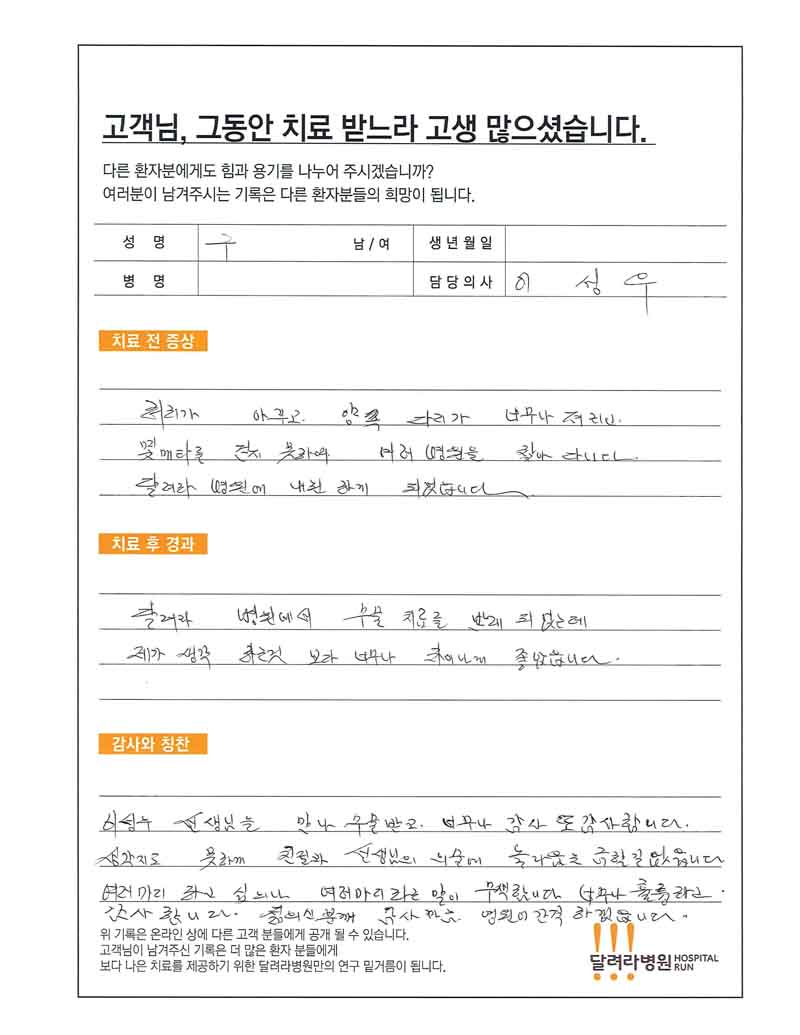 고객님, 그동안 치료 받느라 고생 많으셨습니다.
다른 환자분에게도 힘과 용기를 나누어 주시겠습니까?
여러분이 남겨주시는 기록은 다른 환자분들의 희망이 됩니다.
성 명 구 남 / 여 생년월일
병 명 담당의사 이 성 우
치료 전 증상
허리가 아푸고. 양쪽 다리가 너무나 저리고.
몇메타를 걷지 못하여 여러 병원을 찾아 다니다.
달려라 병원에 내원 하게 되었습니다
치료 후 경과
달려라 병원에서 수술 치료를 받게 되었는데
제가 생각 하는것 보다 너무나 좋았습니다.
감사와 칭찬
이성우 선생님을 만나 수술받고. 너무나 감사 또 감사합니다.
생각지도 못하게 친절과 선생님의 의술에 놀라움을 금할길 없습니다
여러마리 하고 십으나 여러마리라는 말이 무색합니다 너무나 훌륭하고.
감사 합니다. 분께 감사 하겠습니다.
위 기록은 온라인 상에 다른 고객 분들에게 공개 될 수 있습니다.
고객님이 남겨주신 기록은 더 많은 환자 분들에게
보다 나은 치료를 제공하기 위한 달려라병원만의 연구 밑거름이 됩니다.
달려라병원 HOSPITAL RUN